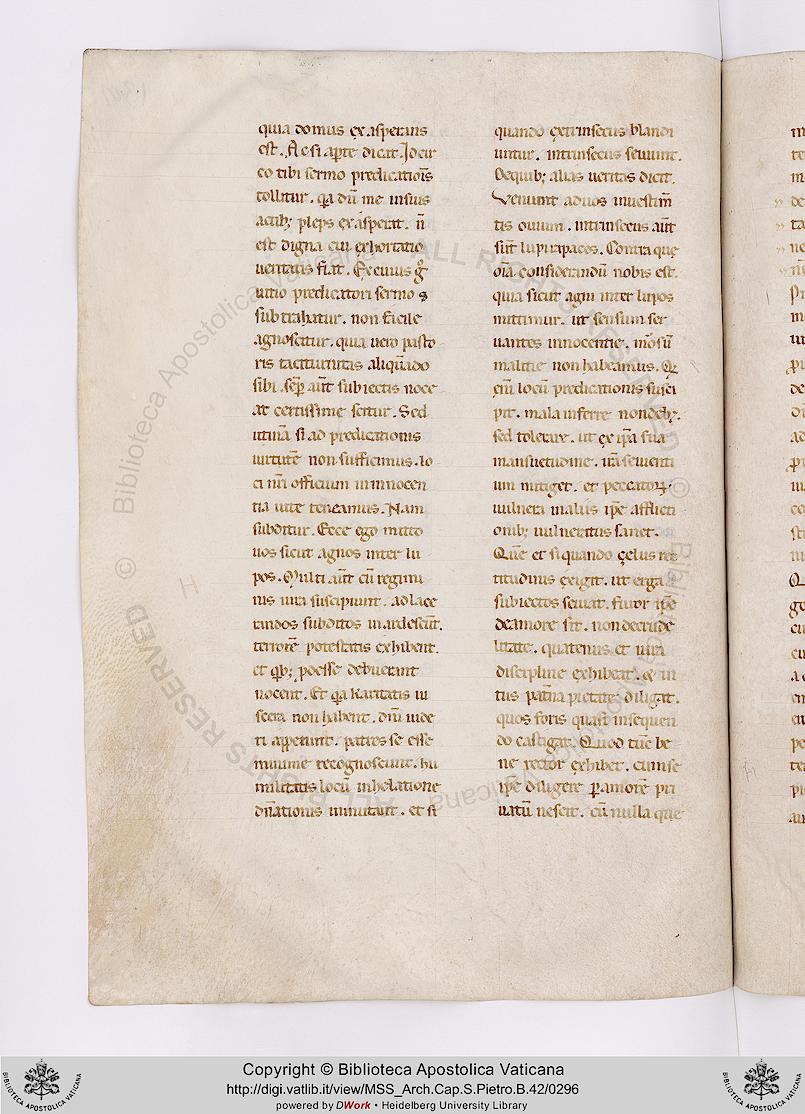 quia domus exasperans
est. Ac si ap̄te dicat. Idcir
co tibi sermo predicatiōis
tollitur. q̄a dū me in suis
actib; plebs exasperat. n̄
est digna cui exhortatio
ueritatis fiat. Ex cuius g̊
uitio predicatori sermo
subtrahatur. non facile
agnoscitur. quia uero pasto
ris taciturnitas aliqn̄do
sibi. sēp aūt subiectis noce
at certissime scitur. Sed
utinā si ad predicationis
uirtutē non sufficimus. lo
ci nr̄i officium in innocen
tia uite teneamus. Nam
subditur. Ecce ego mitto
uos sicut agnos inter lu
pos. Multi aūt cū regimi
nis iura suscipiunt. ad lace
randos subditos inardescūt.
terrorē potestatis exhibent.
et qb; prodesse debuerant
nocent. Et q̄a karitatis ui
scera non habent. dn̄i uide
ri appetunt. patres se esse
minime recognoscunt. hu
militatis locū in helatione
dn̄ationis inmutant. et si
quando extrinsecus blandi
untur. intrinsecus seuiunt.
De quib; alias ueritas dicit.
Veniunt ad uos in uestim̄
tis ouium. intrinsecus aūt
sūt lupi rapaces. Contra que
om̄a considerandū nobis est.
quia sicut agni inter lupos
mittimur. ut sensum ser
uantes innocentie. morsū
malitie non habeamus. Q̄
eni locū predicationis susci
pit. mala inferre non deb;.
sed tolerare. ut ex ip̄a sua
mansuetudine. irā seuienti
um mitiget. et peccatoꝝ
uulnera in aliis ip̄e afflicti
onib; uulneratus sanet.
Quē et si quando zelus rec
titudinis exigit. ut erga
subiectos seuiat. furor ip̄e
de amore sit. non de crude
litate. quatenus et iura
discipline exhibeat. & in
tus pat̄na pietate diligat.
quos foris quasi insequen
do castigat. Quod tūc be
ne rector exhibet. cum se
ip̄e diligere p amorē pri
uatū nescit. cū nulla que
Copyright © Biblioteca Apostolica Vaticana
http://digi.vatlib.it/view/MSS_Arch.Cap.S.Pietro.B.42/0296
powered by DWork • Heidelberg University Library